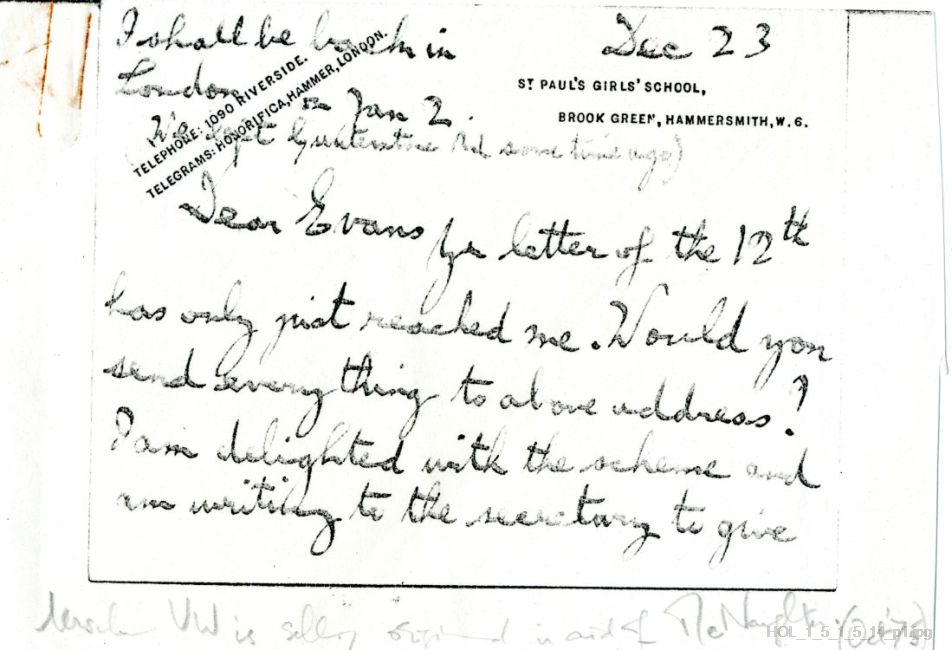 I shall be back in
London on Jan 2.
(We left Gunterstone Rd some time ago)
Dec 23
ST PAUL'S GIRLS' SCHOOL,
BROOK GREEN, HAMMERSMITH, W. 6.
TELEPHONE: 1090 RIVERSIDE.
TELEGRAMS: HONORIFICA, HAMMER, LONDON.
Dear Evans Yr letter of the 12th
has only just reached me. Would you
send everything to above address?
I am delighted with the scheme and
am writing to the secretary to give
VW is selling original in aid of McNaughten (Oct 75)
HOL_1_5_1_5_14_p1.jpg